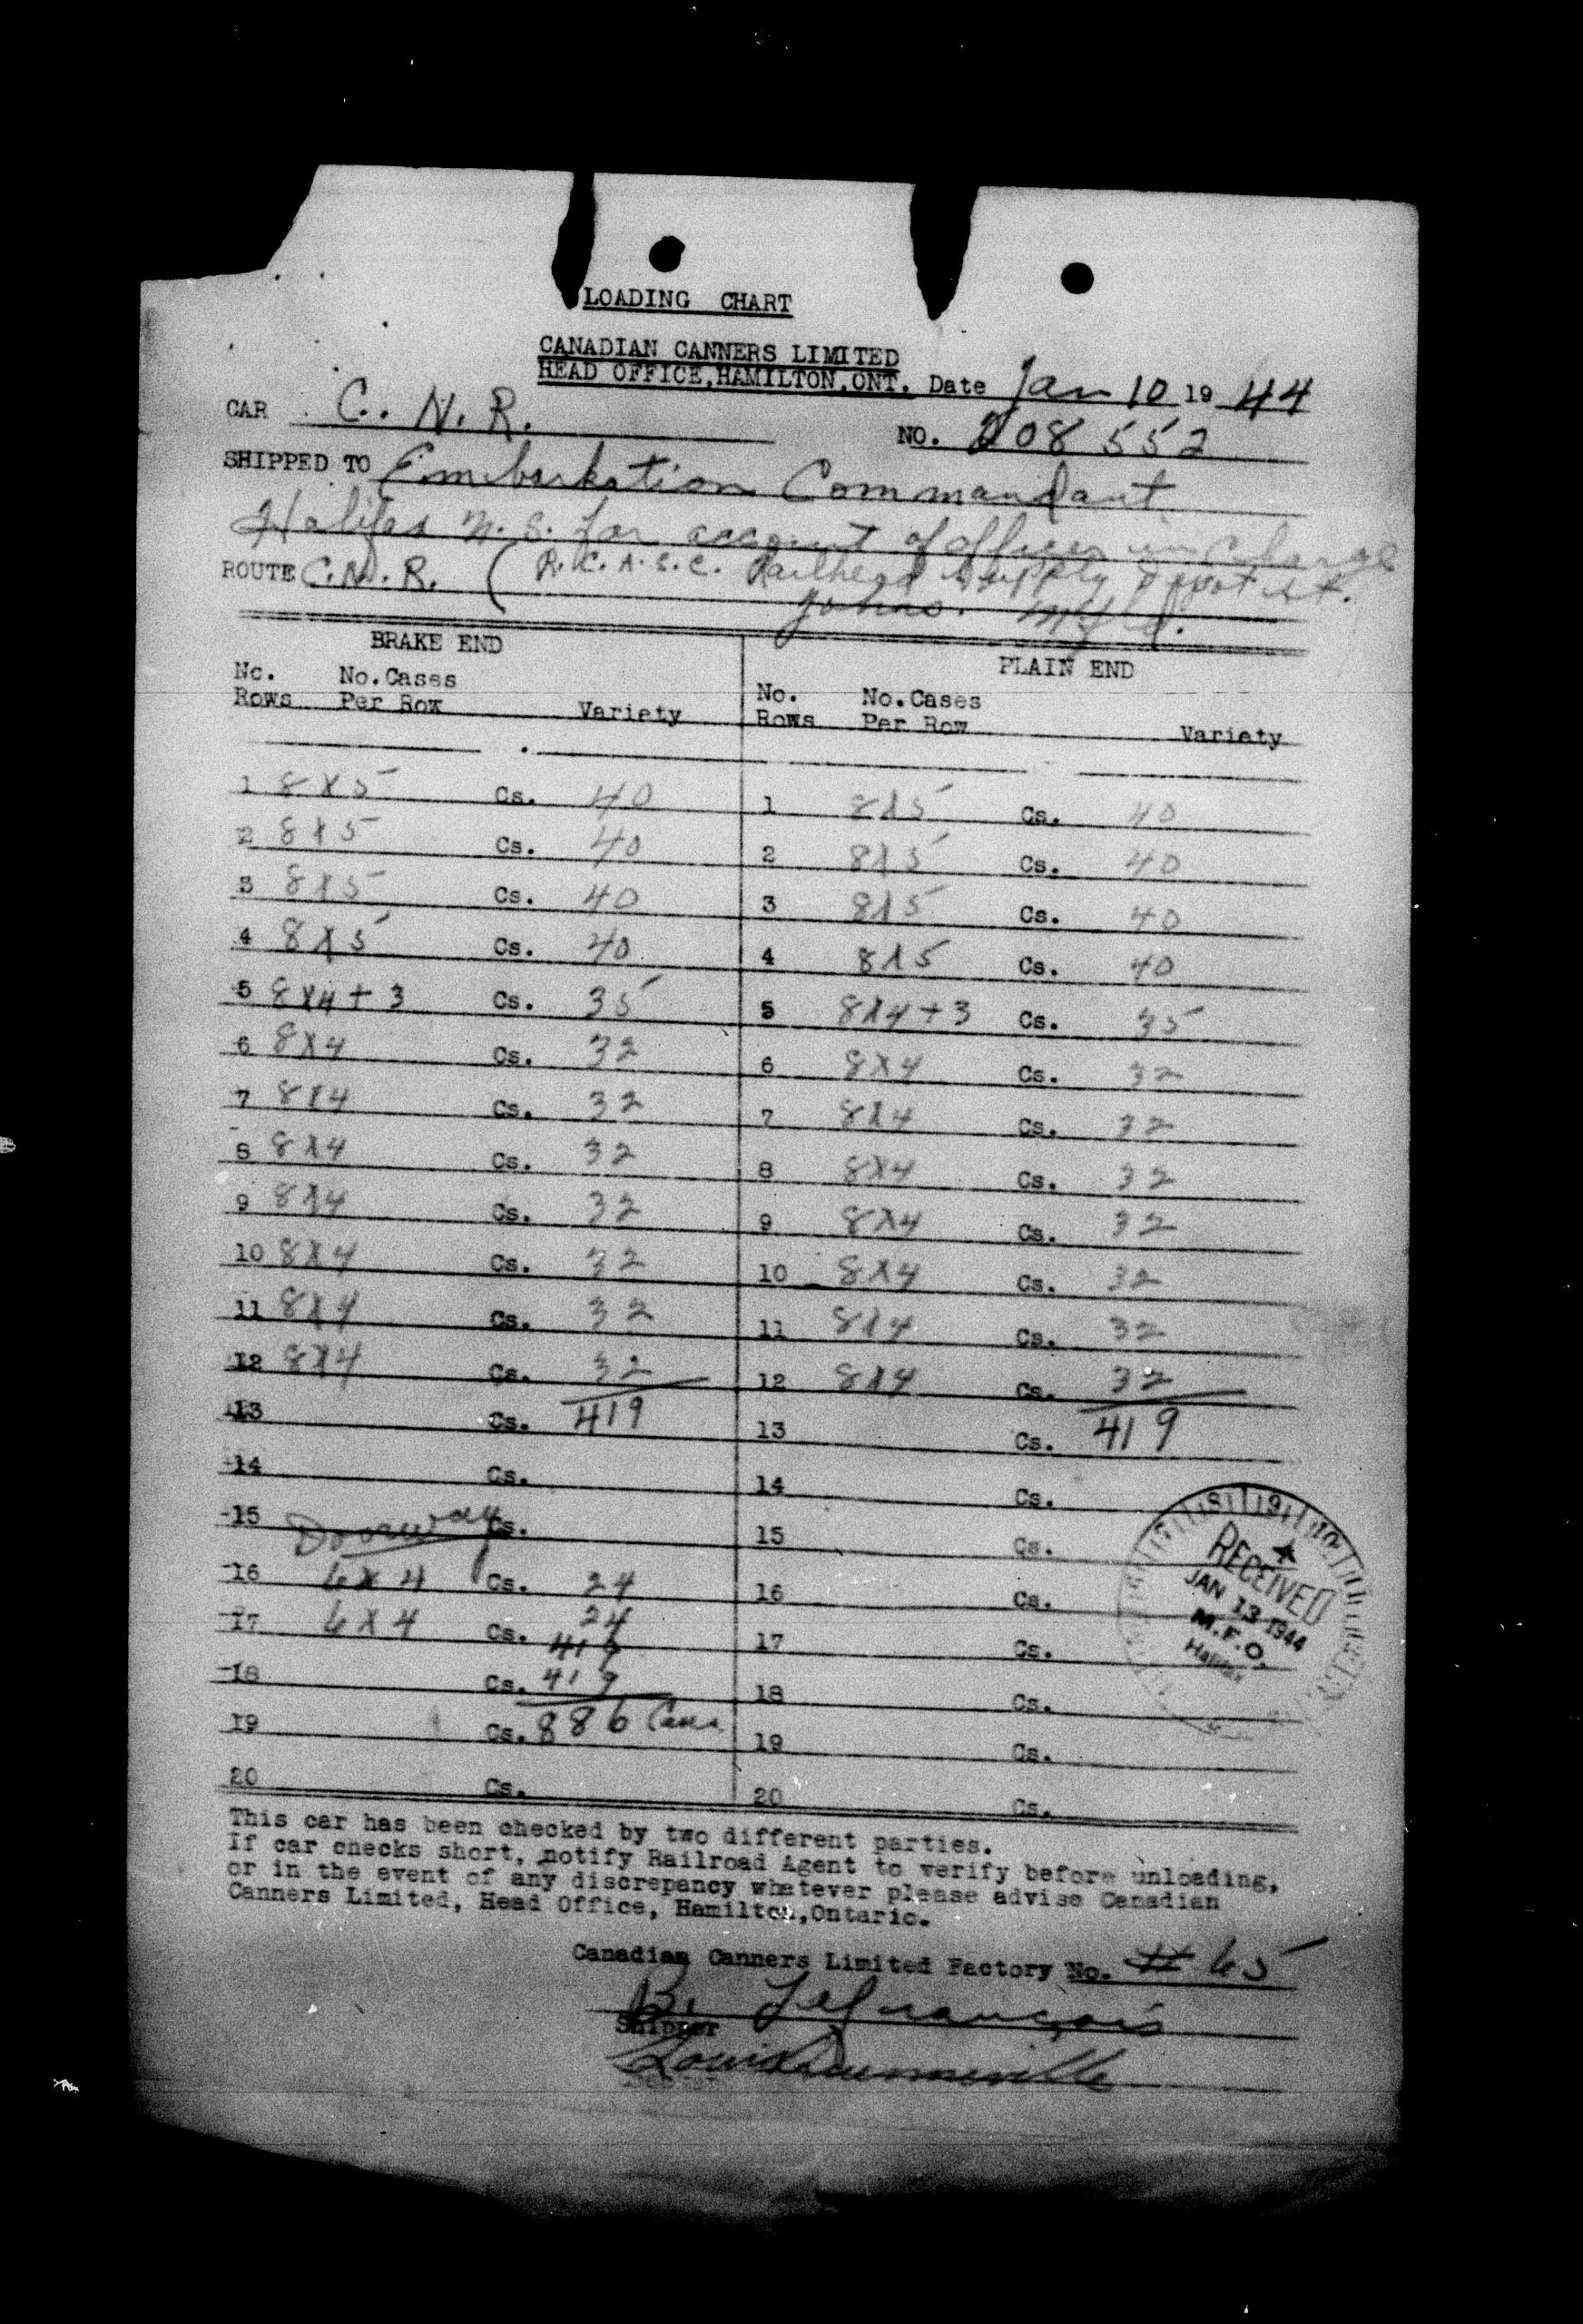 LOADING CHART
CANADIAN CANNERS LIMITED
HEAD OFFICE, HAMILTON, ONT. Date Jan 10 19 44
CAR C. N. R. NO. 208 552
SHIPPED TO Embarkation Commandant
Halifax N. S. for account of officer in Charge
ROUTE C.N.R. (R.C.A.S.C. Railhead Supply Depot St.
Johns. Nfld.
BRAKE END PLAIN END
No. Rows No. Cases Per Row Variety No. Rows No. Cases Per Row Variety
1 8x5 Cs. 40 1 8x5 Cs. 40
2 8x5 Cs. 40 2 8x5 Cs. 40
3 8x5 Cs. 40 3 8x5 Cs. 40
4 8x5 Cs. 40 4 8x5 Cs. 40
5 8x4+3 Cs. 35 5 8x4+3 Cs. 35
6 8x4 Cs. 32 6 8x4 Cs. 32
7 8x4 Cs. 32 7 8x4 Cs. 32
8 8x4 Cs. 32 8 8x4 Cs. 32
9 8x4 Cs. 32 9 8x4 Cs. 32
10 8x4 Cs. 32 10 8x4 Cs. 32
11 8x4 Cs. 32 11 8x4 Cs. 32
12 8x4 Cs. 32 12 8x4 Cs. 32
13 Cs. 419 13 Cs. 419
14 Cs. 14 Cs.
15 Doorway Cs. 15 Cs.
16 6x4 Cs. 24 16 Cs.
17 6x4 Cs. 24 17 Cs.
419
18 Cs. 419 18 Cs.
19 Cs. 886 Cases 19 Cs.
20 Cs. 20 Cs.
RECEIVED
JAN 13 1944
M.F.O.
Halifax
This car has been checked by two different parties.
If car checks short, notify Railroad Agent to verify before unloading,
or in the event of any discrepancy whatever please advise Canadian
Canners Limited, Head Office, Hamilton, Ontario.
Canadian Canners Limited Factory No. # 65
B. Lefrancois
Shipper
Louis